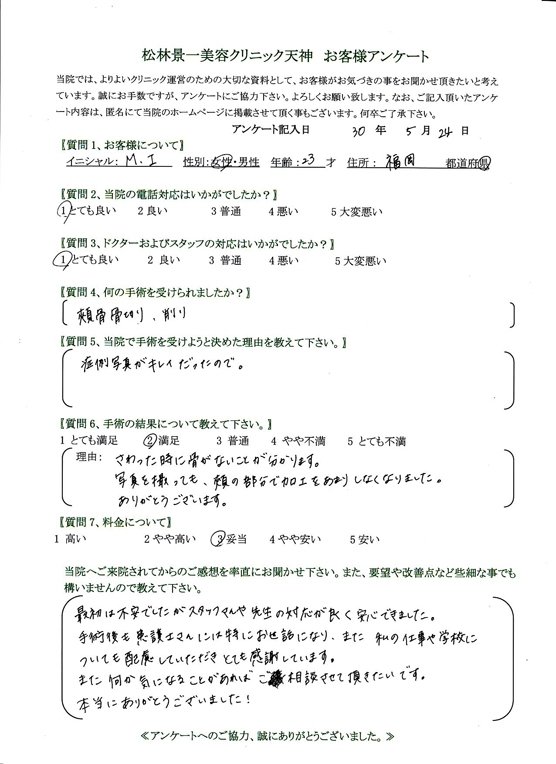 松林景一美容クリニック天神 お客様アンケート
当院では、よりよいクリニック運営のための大切な資料として、お客様がお気づきの事をお聞かせ頂きたいと考え
ています。誠にお手数ですが、アンケートにご協力下さい。よろしくお願い致します。なお、ご記入頂いたアンケ
ート内容は、匿名にて当院のホームページに掲載させて頂く事もございます。何卒ご了承下さい。
アンケート記入日 30 年 5 月 24 日
〖質問1、お客様について〗
イニシャル: M.I 性別:女性・男性 年齢:23 才 住所: 福岡 都道府県
〖質問2、当院の電話対応はいかがでしたか?〗
1とても良い 2良い 3普通 4悪い 5大変悪い
〖質問3、ドクターおよびスタッフの対応はいかがでしたか?〗
1とても良い 2 良い 3 普通 4悪い 5大変悪い
〖質問4、何の手術を受けられましたか?〗
頬骨骨切り、削り
〖質問5、当院で手術を受けようと決めた理由を教えて下さい。〗
症例写真がキレイだったので。
〖質問6、手術の結果について教えて下さい。〗
1 とても満足 2満足 3 普通 4 やや不満 5 とても不満
理由: さわった時に骨がないことが分かります。
写真を撮っても、頬の部分で加工をあまりしなくなりました。
ありがとうございます。
〖質問7、料金について〗
1 高い 2やや高い 3妥当 4やや安い 5安い
当院へご来院されてからのご感想を率直にお聞かせ下さい。また、要望や改善点など些細な事でも
構いませんので教えて下さい。
最初は不安でしたがスタッフさんや先生の対応が良く安心できました。
手術後も看護士さんには特にお世話になり、また 私の仕事や学校に
ついても配慮していただきとても感謝しています。
また何か気になることがあれば ご相談させて頂きたいです。
本当にありがとうございました!
≪アンケートへのご協力、誠にありがとうございました。≫